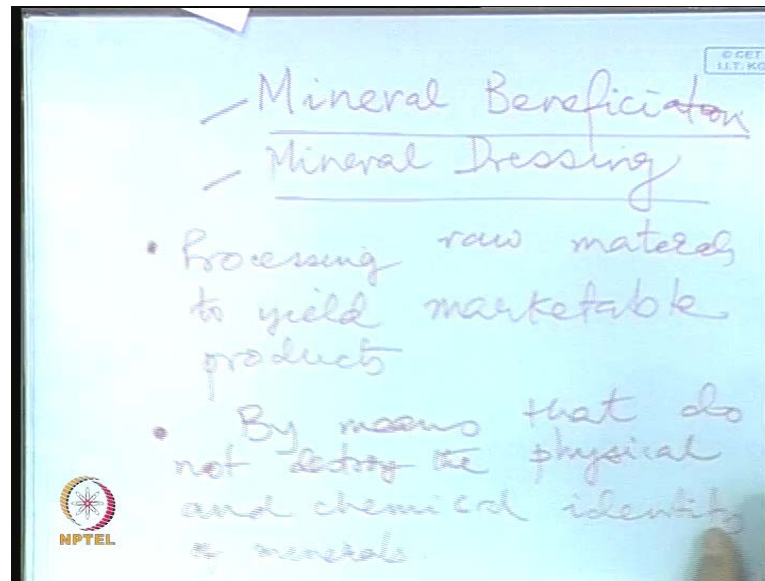 © CET
I.I.T. KG
Mineral Beneficiation
Mineral Dressing
• Processing raw materals
to yield marketable
products
• By means that do
not destroy the physical
and chemical identity
of minerals.
NPTEL